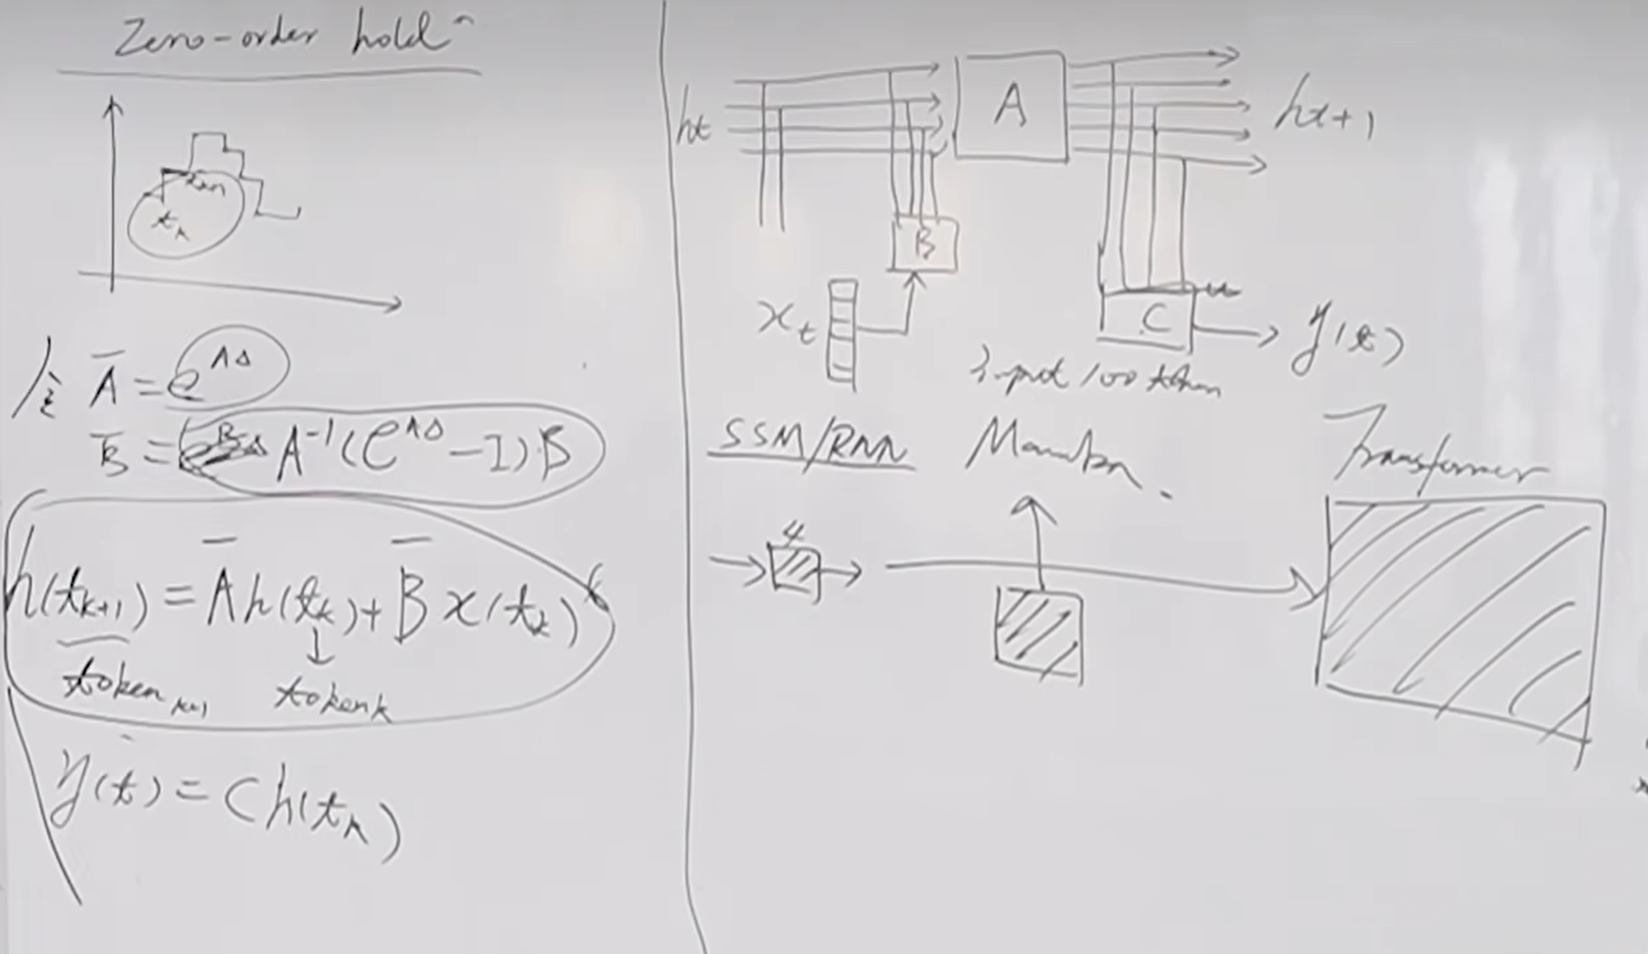 Zero-order hold
t_k
Ā = e^{AΔ}
B̄ = A^{-1}(e^{AΔ} - I)B
h(t_{k+1}) = Ā h(t_k) + B̄ x(t_k)
token_{k+1} token k
y(t) = C h(t_k)
h_t A h_{t+1}
B
x_t C y(t)
input 100 token
SSM/RNN Mamba Transformer
4